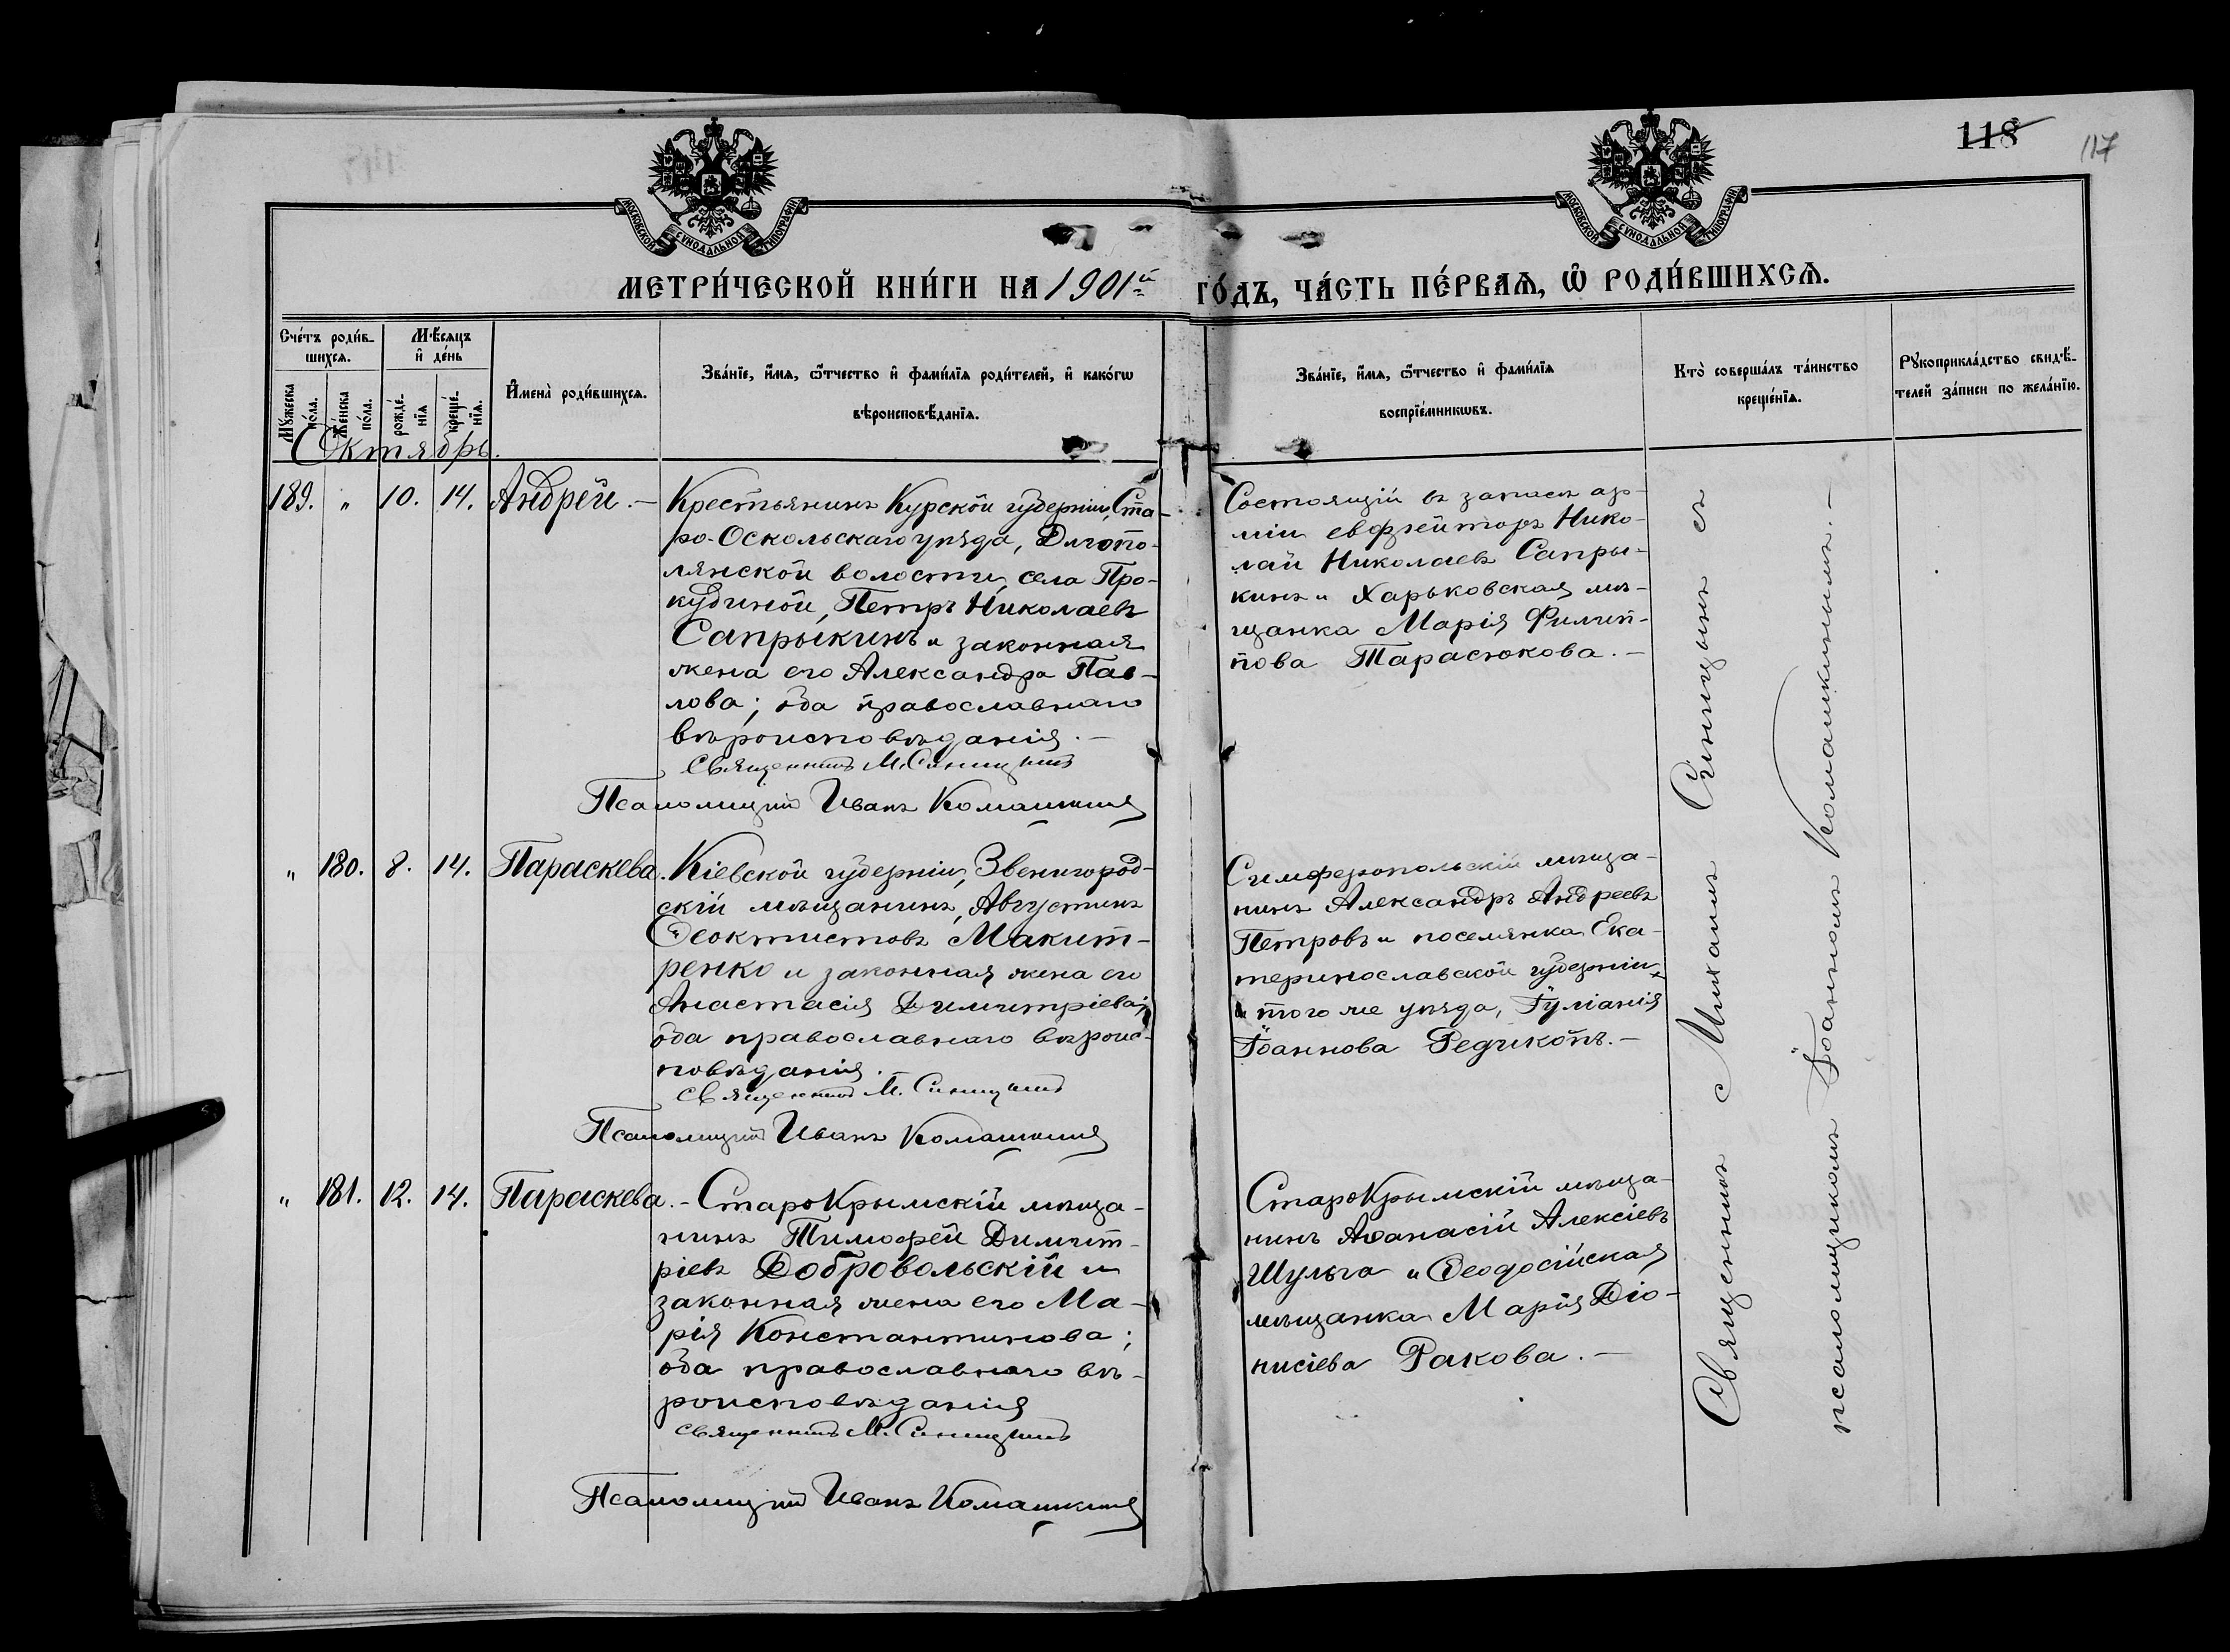 118
117
МОСКОВСКОЙ СѴНОДАЛЬНОЙ ТИПОГРАФІИ
МОСКОВСКОЙ СѴНОДАЛЬНОЙ ТИПОГРАФІИ
МЕТРИ́ЧЕСКОЙ КНИ́ГИ НА 1901й ГО́ДЪ, ЧА́СТЬ ПЕ́РВАѦ, Ѽ РОДИ́ВШИХСѦ.
Сче́тъ роди́в-
шихся.
Мꙋ́жеска
по́ла.
Же́нска
по́ла.
Мѣ́сяцъ
и҆ де́нь
рожде́-
нія
креще́-
нія.
И҆мена̀ роди́вшихся.
Зва́нїе, и҆́мя, ѻ҆́тчество и҆ фами́лїя роди́телей, и҆ како́гѡ
вѣроисповѣ́данїя.
Зва́нїе, и҆́мя, ѻ҆́тчество и҆ фами́лїя
воспрїе́мникѡвъ.
Кто̀ соверша́лъ та́инство
креще́нїя.
Рꙋкоприкла́дство свидѣ́-
телей за́писи по жела́нїю.
Октябрь.
189. " 10. 14. Андрей. —
Крестьянинъ Курской губерніи, Ста-
ро-Оскольскаго уѣзда, Длгопо-
лянской волости, села Про-
кудиной, Петръ Николаевъ
Сапрыкинъ и законная
жена его Александра Пав-
лова; оба православнаго
вѣроисповѣданія. —
Священникъ М. Синицынъ
Псаломщикъ Иванъ Комашкинъ
Состоящій въ запасѣ ар-
міи ефрейторъ Нико-
лай Николаевъ Сапры-
кинъ и Харьковская мѣ-
щанка Марія Филип-
пова Тарасюкова. —
" 180. 8. 14. Параскева.
Кіевской губерніи, Звенигород-
скій мѣщанинъ, Августинъ
Ѳеоктистовъ Макит-
ренко и законная жена его
Анастасія Димитріева;
оба православнаго вѣроис-
повѣданія.
Священникъ М. Синицынъ
Псаломщикъ Иванъ Комашкинъ
Симферопольскій мѣща-
нинъ Александръ Андреевъ
Петровъ и поселянка Ека-
теринославской губерніи,
и того же уѣзда, Іуліанія
Іоаннова Редикопъ. —
" 181. 12. 14. Параскева. —
СтароКрымскій мѣща-
нинъ Тимофей Димит-
ріевъ Добровольскій и
законная жена его Ма-
рія Константинова;
оба православнаго вѣ-
роисповѣданія
Священникъ М. Синицынъ
Псаломщикъ Иванъ Комашкинъ
СтароКрымскій мѣща-
нинъ Аѳанасій Алексіевъ
Шульга и Ѳеодосійская
мѣщанка Марія Діо-
нисіева Ракова. —
Священникъ Михаилъ Синицынъ съ
псаломщикомъ Іоанномъ Комашкинымъ. —